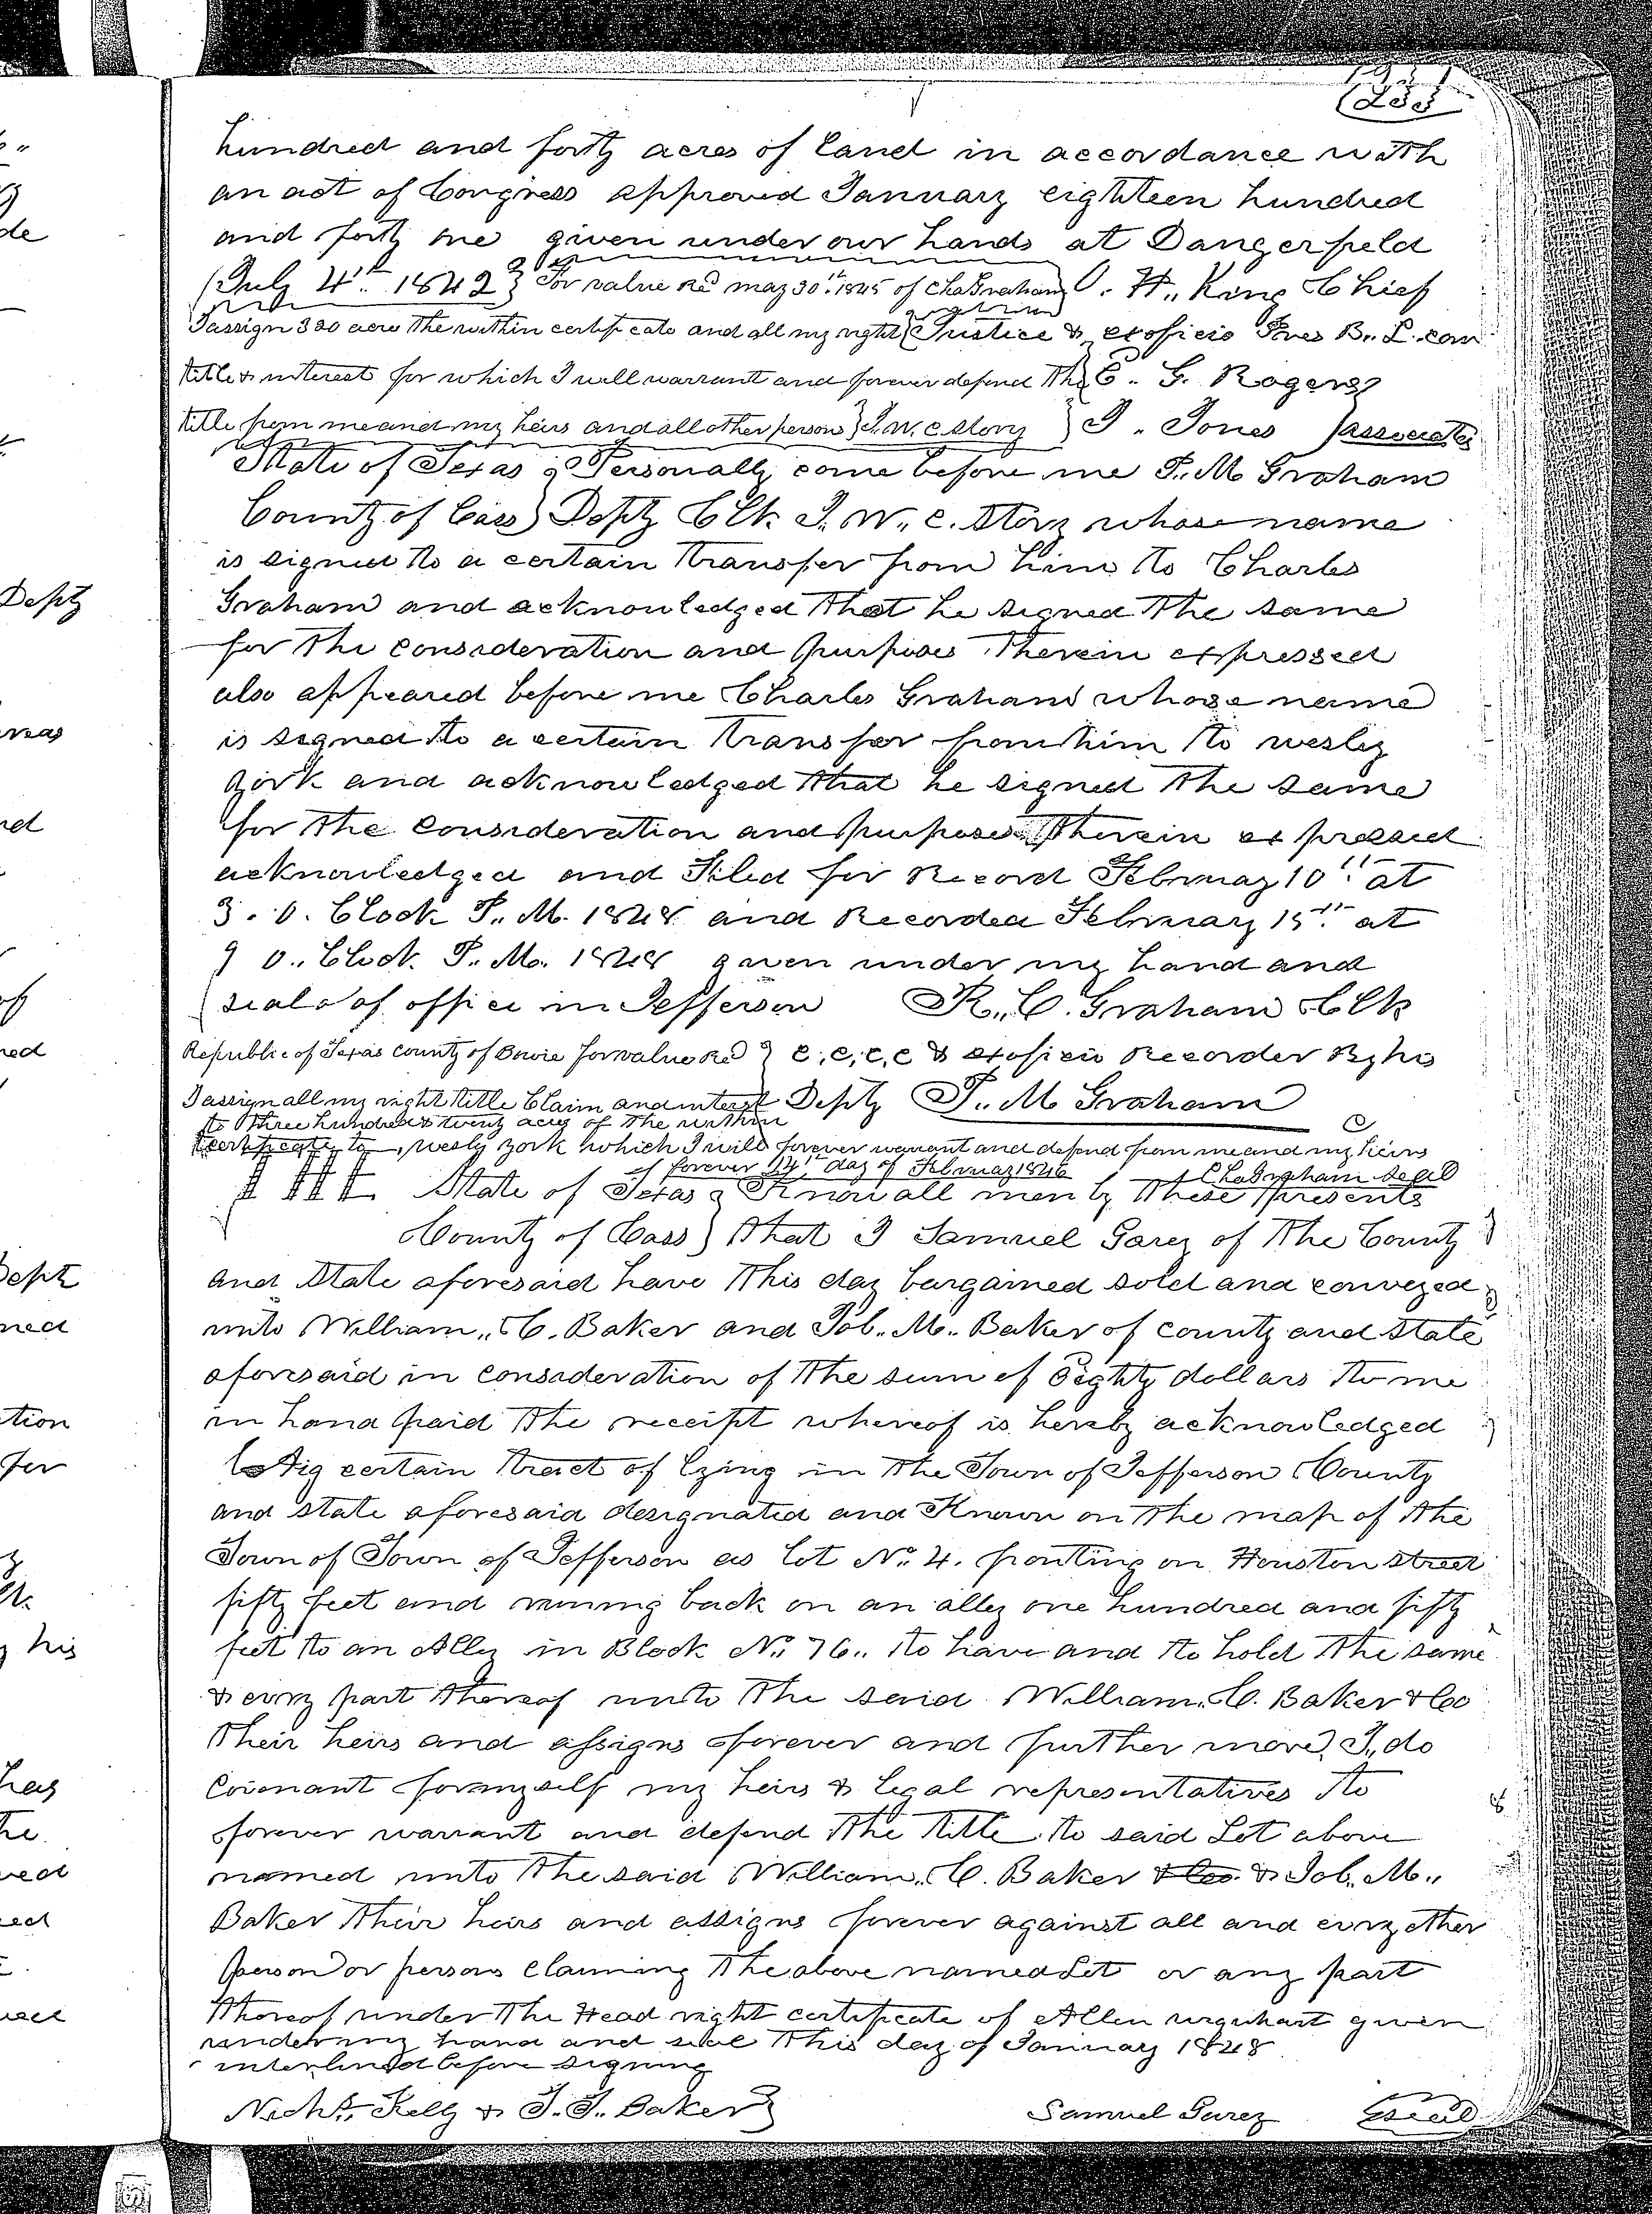 233
hundred and forty acres of land in accordance with
an act of Congress approved January eighteen hundred
and forty one given under our hands at Dangerfield
July 4th 1842 } For value recd may 30th 1845 of Chas Graham } . H., King Chief
I assign 320 acres the within certificate and all my right { Justice & exoficio Pres B.. L. com
title & interest for which I will warrant and forever defend the } C.. G. Rogers
title from me and my heirs and all other persons } J. W. C. Story } I . Jones } associates
State of Texas } Personally come before me P.. M Graham
County of Cass } Depty Clk J. W.. C. Story whose name
is signed to a certain transfer from him to Charles
Graham and acknowledged that he signed the same
for the consideration and purposes therein expressed
also appeared before me Charles Graham whose name
is signed to a certain transfer from him to wesley
york and acknowledged that he signed the same
for the consideration and purposes therein expressed
acknowledged and Filed for Record February 10th at
3 . O. Clock P.. M. 1848 and Recorded February 15th at
9 O.. Clock. P.. M. 1848 given under my hand and
seal of office in Jefferson R.. C. Graham Clk
Republic of Texas county of Bowie for value recd } C. C. C. C & exoficio Recorder By his
I assign all my right title Claim and interest Depty P.. M Graham
to three hundred & twenty acres of the within
certificate to, wesly york which I will forever warrant and defend from me and my heirs
forever 14th day of February 1846 Chas Graham seal
State of Texas } Know all men by these presents
County of Cass } that I Samuel Garey of the County
and State aforesaid have this day bargained sold and conveyed
unto William.. C. Baker and Job.. M.. Baker of county and state
aforesaid in consideration of the sum of Eighty dollars to me
in hand paid the receipt whereof is hereby acknowledged
certain tract of lying in the Town of Jefferson County
and state aforesaid designated and Known on the map of the
Town of Town of Jefferson as lot No. 4. fronting on Houston street
fifty feet and running back on an alley one hundred and fifty
feet to an Alley in Block No. 76.. to have and to hold the same
& evry part thereof unto the said William.. C. Baker & Co
their heirs and assigns forever and further more, I.. do
Covenant for myself my heirs & legal representatives to
forever warrant and defend the title to said Lot above
named unto the said William.. C. Baker & Co. & Job.. M..
Baker their heirs and assigns forever against all and evry other
person or persons claiming the above named Lot or any part
thereof under the Head right certificate of Allen urquhart given
under my hand and seal this day of January 1848
interlined before signing
Nichs. Kelly & J. J. Baker } Samuel Garey seal